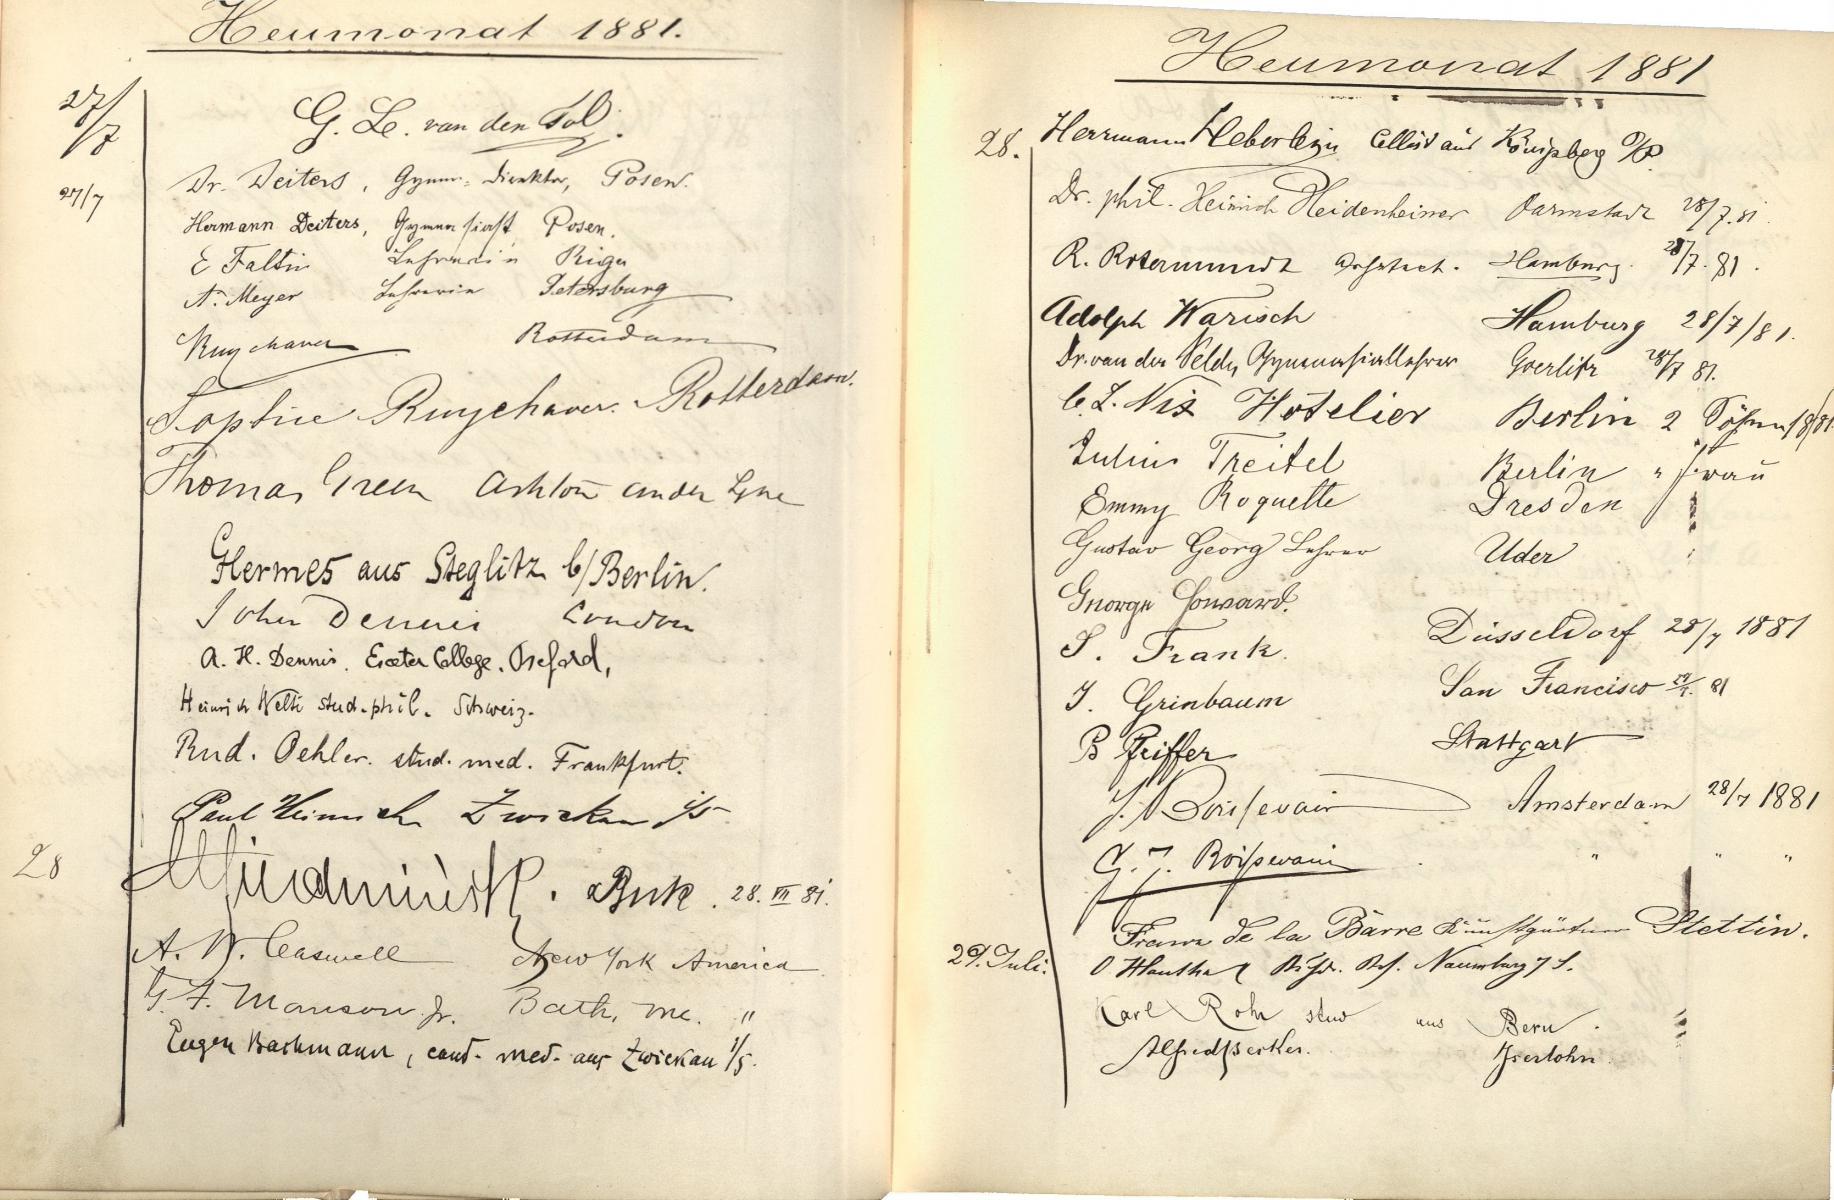 Heumonat 1881.
27/7
G. L. van den Tol.
27/7 Dr. Deiters, Gymn.-Direktor, Posen.
Hermann Deiters, Gymnasiast Posen.
E Faltin Lehrerin Riga
A. Meyer Lehrerin Petersburg
Ruychaver Rotterdam
Sophie Ruychaver. Rotterdam.
Thomas Green Ashton under Lyne
Hermes aus Steglitz b/Berlin.
John Dennis London
A. H. Dennis. Exeter College. Oxford,
Heinrich Welti stud. phil. Schweiz.
Rud. Oehler. stud. med. Frankfurt.
Paul Heinrich Zwickau i/S
28
Buk. 28. VII 81.
A. W. Caswell New York America
G. F. Manson Jr. Bath, Me. "
Eugen Bachmann, cand. med. aus Zwickau i/S.
Heumonat 1881
28. Herrmann Heberlein Cellist aus Königsberg O/P.
Dr. phil. Heinrich Heidenheimer Darmstadt 28/7. 81.
R. Rotermundt Architect. Hamburg. 28/7. 81.
Adolph Warisch Hamburg 28/7/81.
Dr. van der Velde, Gymnasiallehrer Goerlitz 28/7 81.
C. L. Nix Hotelier Berlin 2 Söhne
Julius Treitel Berlin " Frau
Emmy Roquette Dresden
Gustav Georg Lehrer Uder
George
S. Frank. Düsseldorf 28/7 1881
J. Grinbaum San Francisco 81
B Pfeiffer Stuttgart
J. Boissevain Amsterdam 28/7 1881
G. J. Boissevain " " "
Franz de la Barre Kunstgärtner Stettin.
29. Juli. O Naumburg / S.
Karl Rohr stud aus Bern.
Alfred Iserlohn.